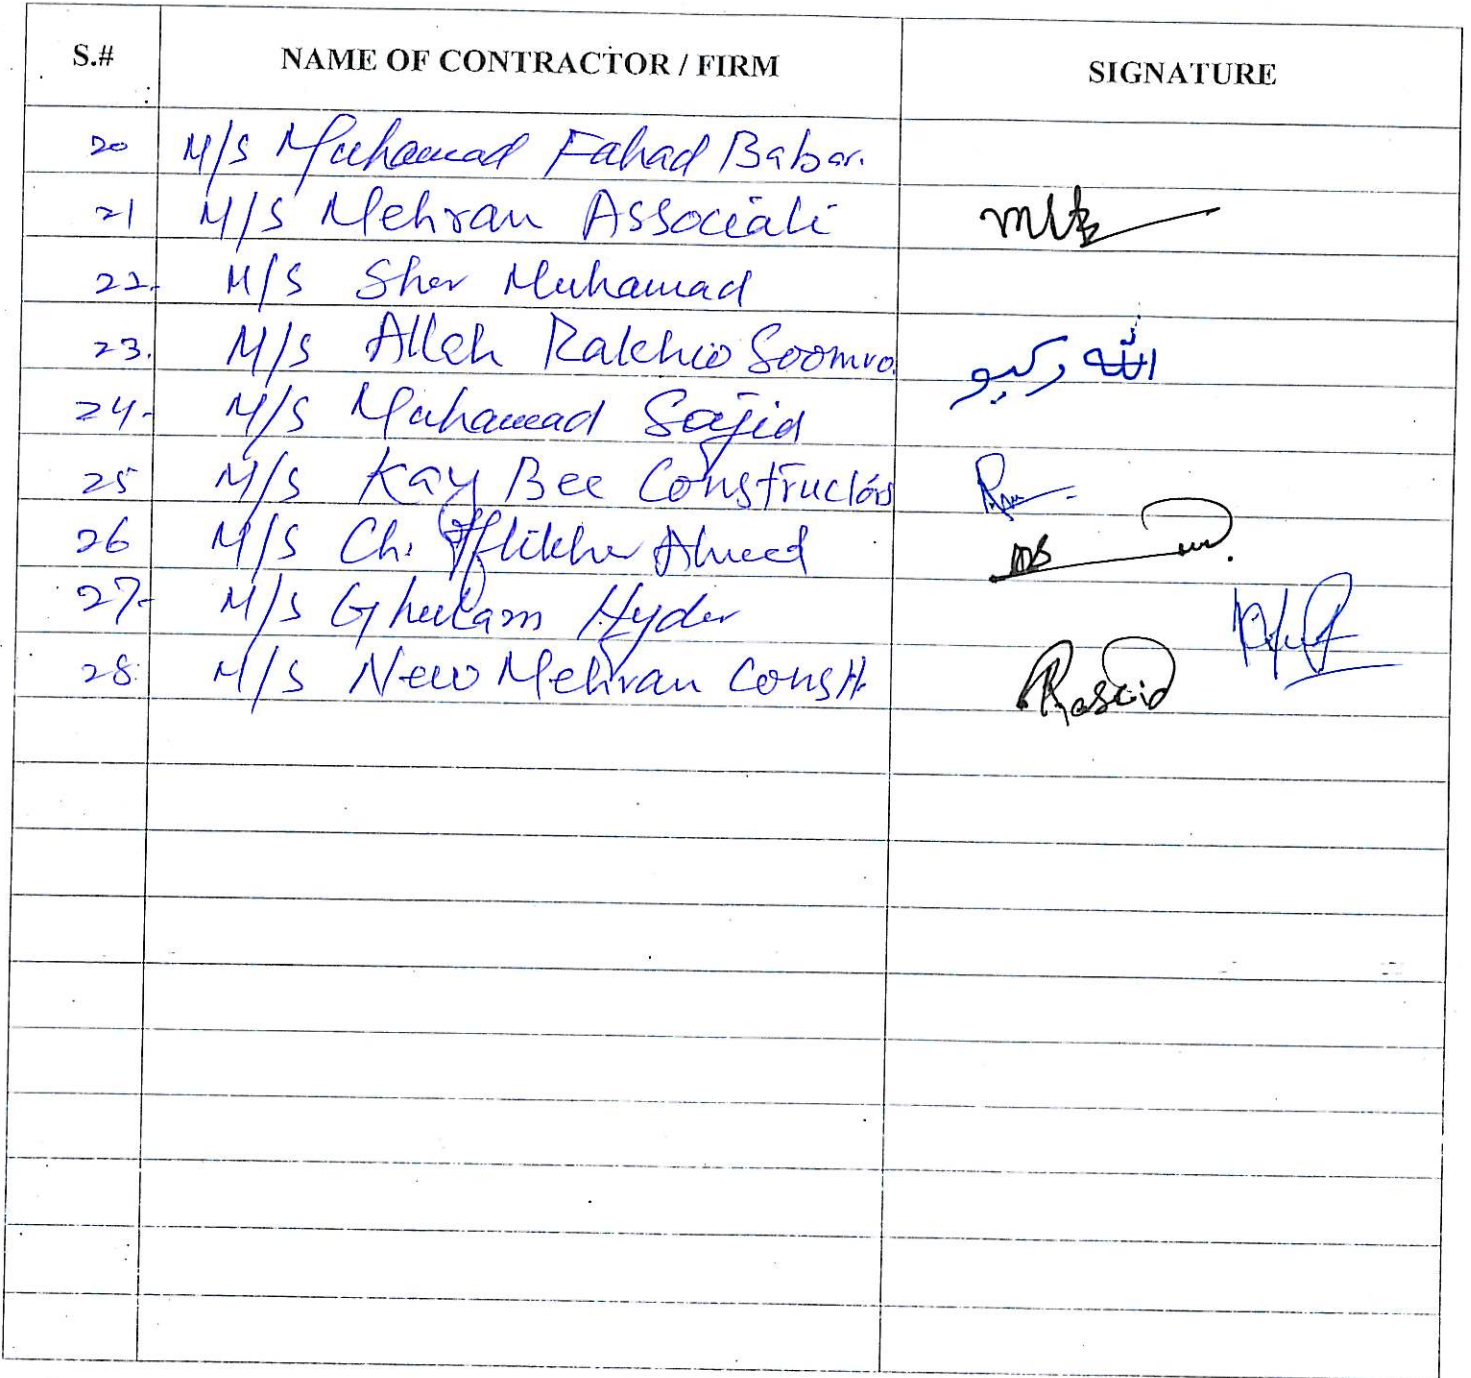 S.# NAME OF CONTRACTOR / FIRM SIGNATURE
20 M/S Muhamad Fahad Babar.
21 M/S Mehran Associate
22. M/S Sher Muhamad
23. M/S Allah Rakhio Soomro. الله رکیو
24- M/S Muhamad Sajid
25 M/S Kay Bee Constructors
26 M/S Ch. Iftikhar Ahmed
27- M/S Ghulam Hyder
28. M/S New Mehran Constt. Rashid